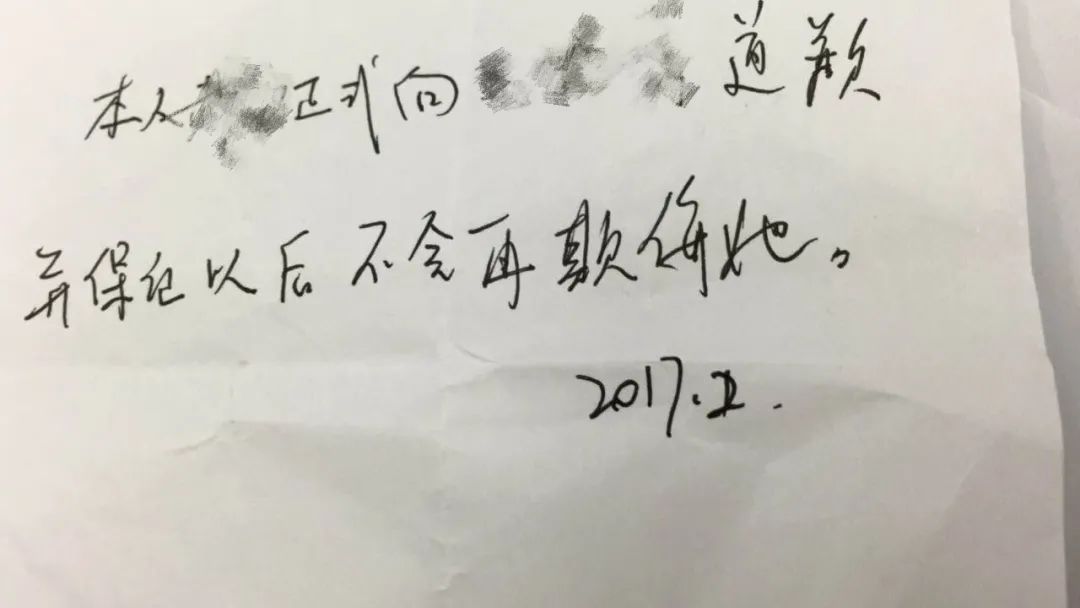 本人 正式向 道歉
并保证以后不会再欺侮她。
2017.